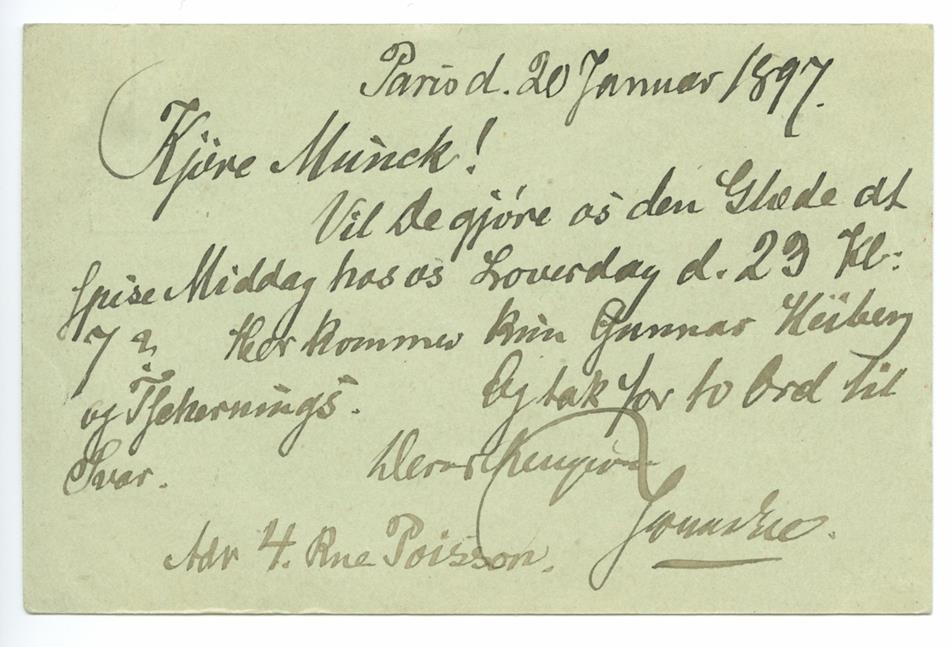 Paris d. 20 Januar 1897.
Kjøre Munck!
Vil De gjøre os den Glæde at
spise Middag hos os Løverdag d. 23 Kl:
7? Her kommer kun Gunnar Heiberg
og Tschernings. Og tak for to Ord til
Svar. Deres
Adr 4. Rue Poisson.